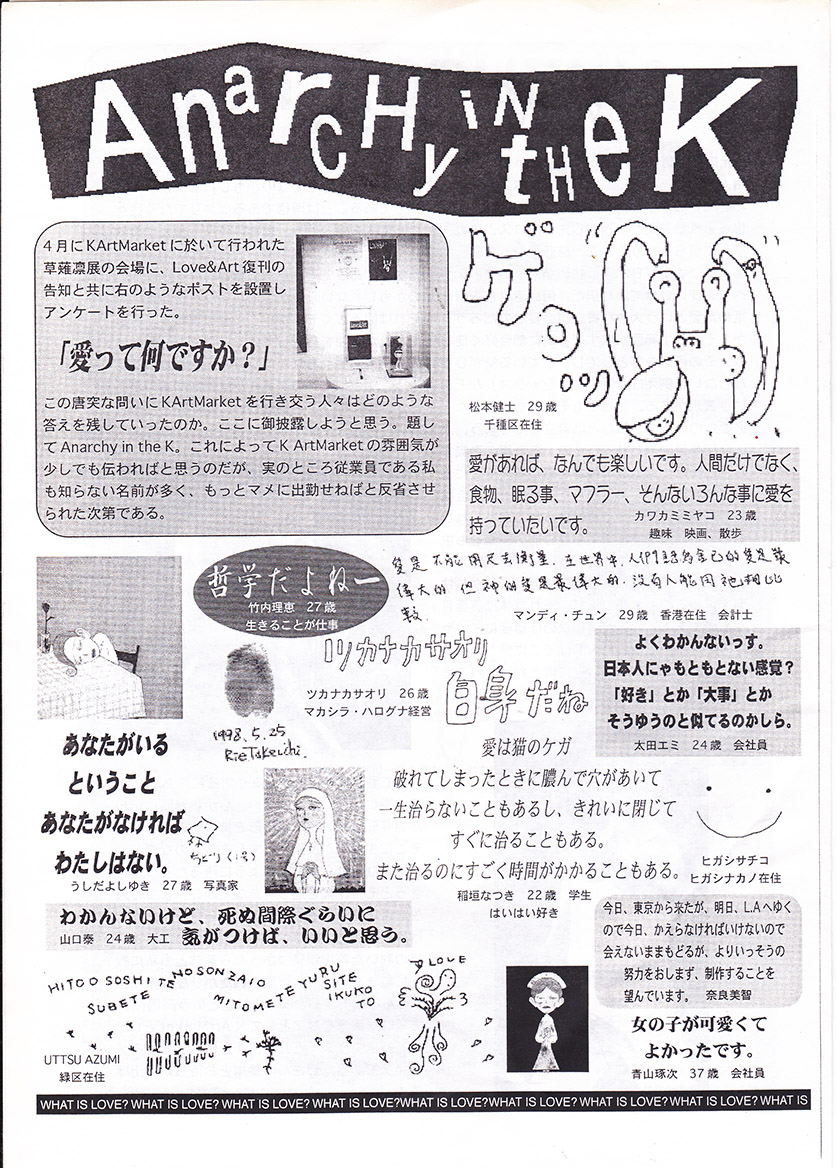 Anarchy in the K
4月にKArtMarketに於いて行われた
草薙凛展の会場に、Love&Art復刊の
告知と共に右のようなポストを設置し
アンケートを行った。
「愛って何ですか？」
この唐突な問いにKArtMarketを行き交う人々はどのような
答えを残していったのか。ここに御披露しようと思う。題し
てAnarchy in the K。これによってK ArtMarketの雰囲気が
少しでも伝わればと思うのだが、実のところ従業員である私
も知らない名前が多く、もっとマメに出勤せねばと反省させ
られた次第である。
ゲロッ
松本健士　29歳
千種区在住
愛があれば、なんでも楽しいです。人間だけでなく、
食物、眠る事、マフラー、そんないろんな事に愛を
持っていたいです。
カワカミミヤコ　23歳
趣味　映画、散歩
哲学だよねー
竹内理恵　27歳
生きることが仕事
1998.5.25
Rie Takeuchi.
愛是不能用尺去衡量.在世界中,人們認為自己的愛是最
偉大的.但神的愛是最偉大的.沒有人能用祂相比
較.
マンディ・チュン　29歳　香港在住　会計士
ツカナカサオリ
自身だね
ツカナカサオリ　26歳
マカシラ・ハログナ経営
よくわかんないっす。
日本人にゃもともとない感覚？
「好き」とか「大事」とか
そうゆうのと似てるのかしら。
太田エミ　24歳　会社員
あなたがいる
ということ
あなたがなければ
わたしはない。
うしだよしゆき　27歳　写真家
愛は猫のケガ
破れてしまったときに膿んで穴があいて
一生治らないこともあるし、きれいに閉じて
すぐに治ることもある。
また治るのにすごく時間がかかることもある。
稲垣なつき　22歳　学生
はいはい好き
ヒガシサチコ
ヒガシナカノ在住
わかんないけど、死ぬ間際ぐらいに
気がつけば、いいと思う。
山口泰　24歳　大工
今日、東京から来たが、明日、L.Aへゆく
ので今日、かえらなければいけないので
会えないままもどるが、よりいっそうの
努力をおしまず、制作することを
望んでいます。　奈良美智
HITO O SOSHITE NO SONZAIO
SUBETE MITOMETE YURU
SITE
IKUKO
TO
LOVE
UTTSU AZUMI
緑区在住
女の子が可愛くて
よかったです。
青山琢次　37歳　会社員
WHAT IS LOVE? WHAT IS LOVE? WHAT IS LOVE? WHAT IS LOVE?WHAT IS LOVE? WHAT IS LOVE? WHAT IS LOVE? WHAT IS LOVE? WHAT IS